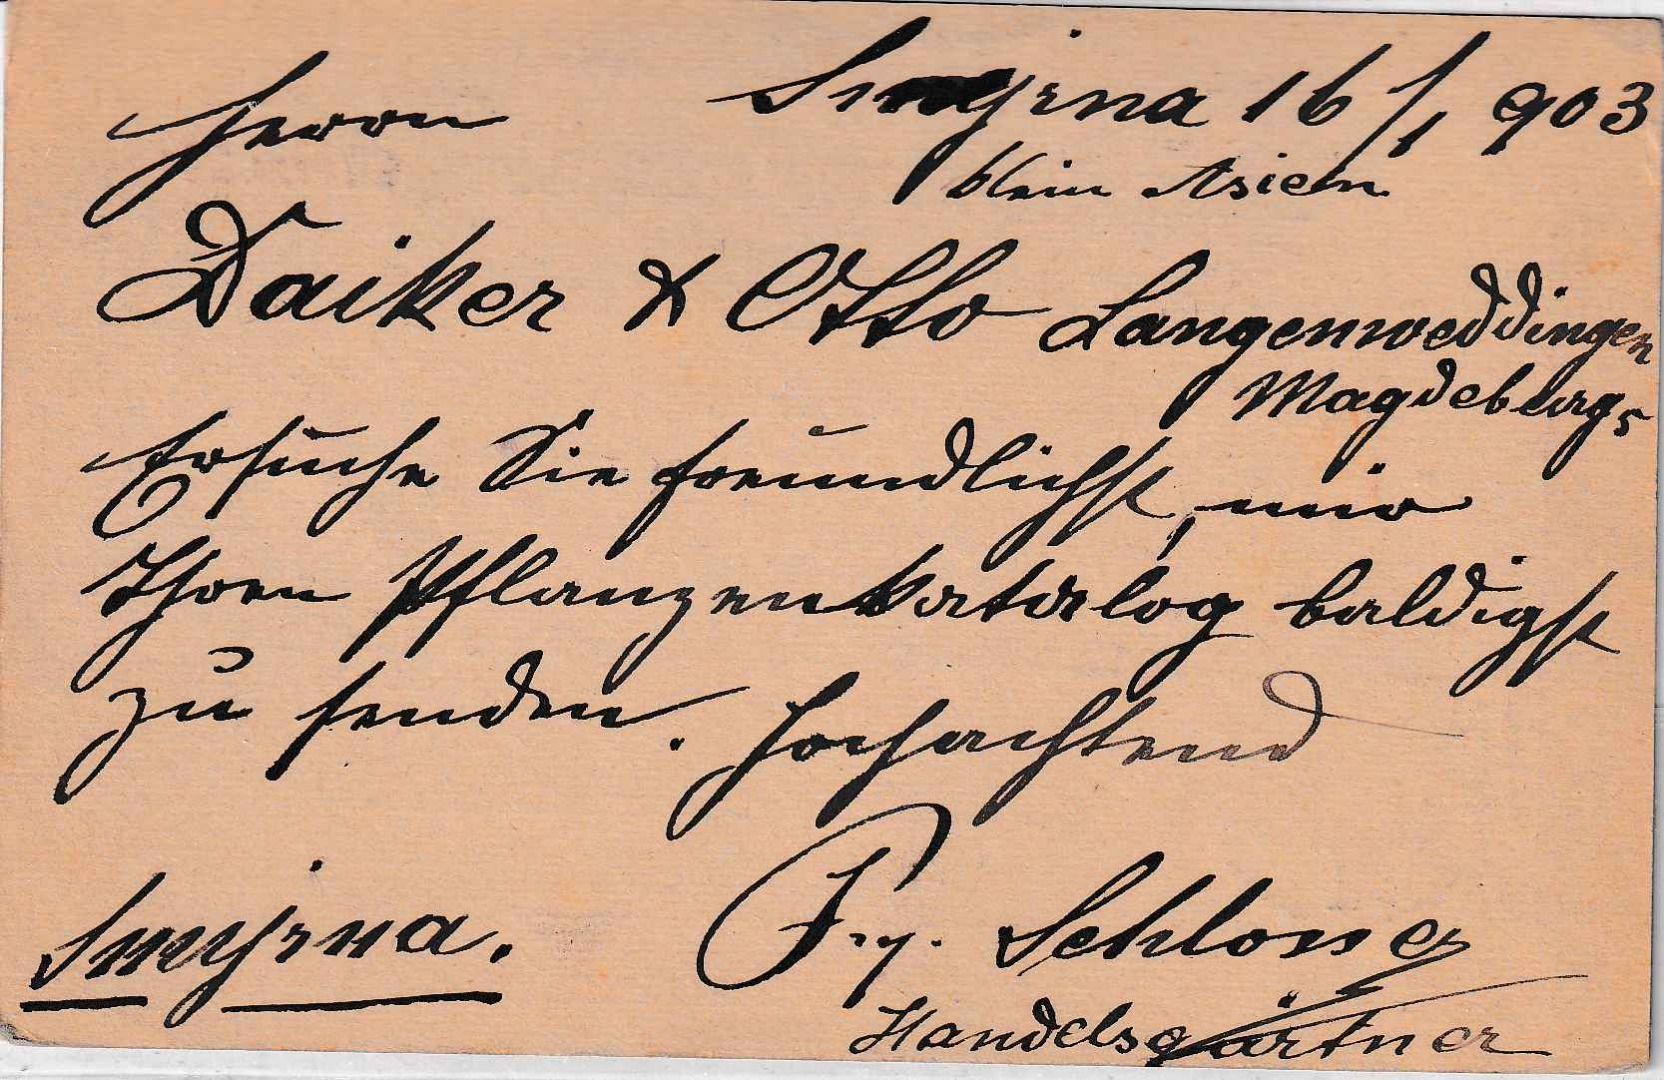 Smyrna 16/1 903
Klein Asien
Herrn
Daiker & Otto Langenweddingen
Magdeburgs
Ersuche Sie freundlichst, mir
Ihren Pflanzenkatalog baldigst
zu senden. Hochachtend
Schlosser
Handelsgärtner
Smyrna.